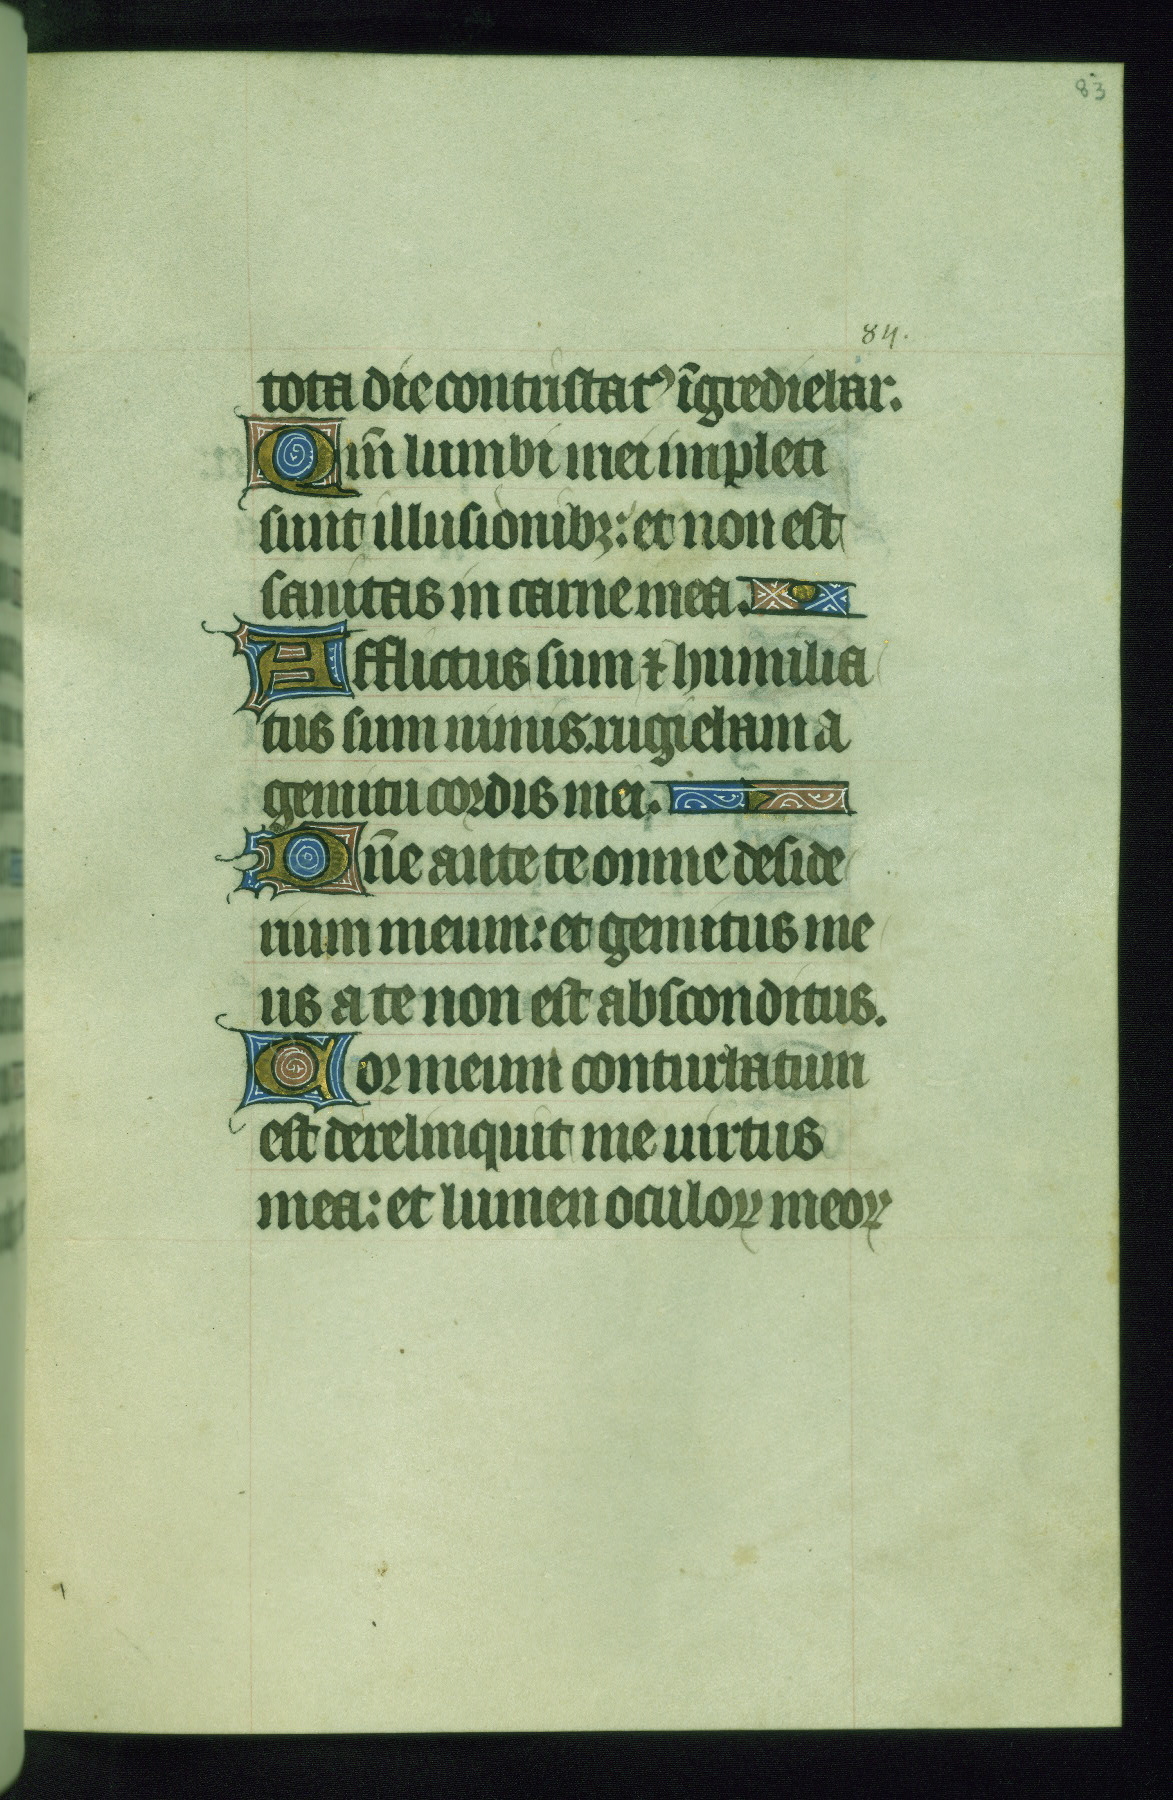 83
84.
tota die contristatꝰ īgrediebar.
Qm̄ lumbi mei impleti
sunt illusionibꝫ: et non est
sanitas in carne mea.
Afflictus sum ⁊ humilia
tus sum nimis. rugiebam a
gemitu cordis mei.
Dn̄e ante te omne deside
rium meum: et gemitus me
us a te non est absconditus.
Cor meum conturbatum
est derelinquit me uirtus
mea: et lumen oculoꝝ meoꝝ